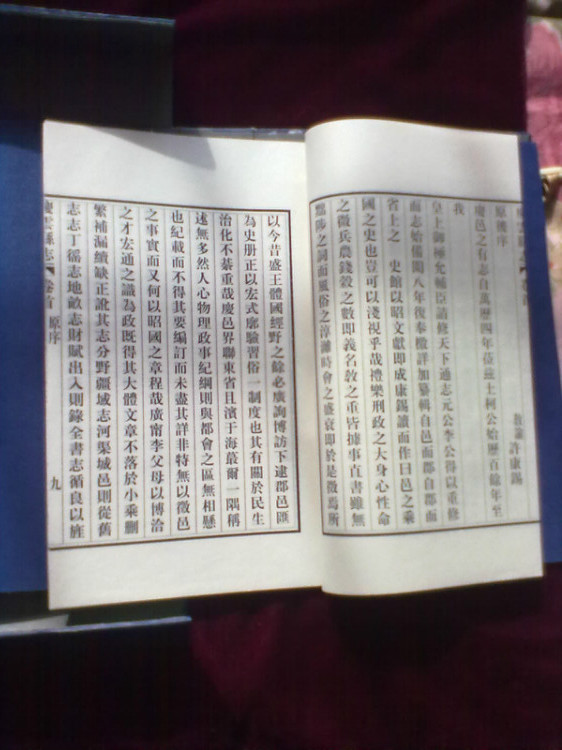 原後序
教諭 許康錫
慶邑之有志自萬歷四年茲土柯公始歷百餘年至
我
皇上御極允輔臣請修天下通志元公李公得以重修
而志始備閱八年復奉檄詳加纂輯自邑而郡自郡而
省上之 史館以昭文獻即成康錫讀而作曰邑之乘
國之史也豈可以淺視乎哉禮樂刑政之大身心性命
之微兵農錢穀之數即義名教之重皆據事直書雖無
黜陟之詞而風俗之淳漓時會之盛衰即於是徵焉所
以今昔盛王體國經野之餘必廣詢博訪下逮郡邑匯
為史册正以宏式廓驗習俗一制度也其有關於民生
治化不綦重哉慶邑界聯東省且濱于海蕞爾一隅稱
述無多然人心物理政事紀綱則與都會之區無相懸
也紀載而不得其要編訂而未盡其詳非特無以徵邑
之事實而又何以昭國之章程哉廣甯李父母以博洽
之才宏通之識為政既得其大體文章不落於小乘刪
繁補漏續缺正訛其志分野疆域志河渠城邑則從舊
志志丁徭志地畝志財賦出入則錄全書志循良以旌
慶雲縣志 卷首 原序
九